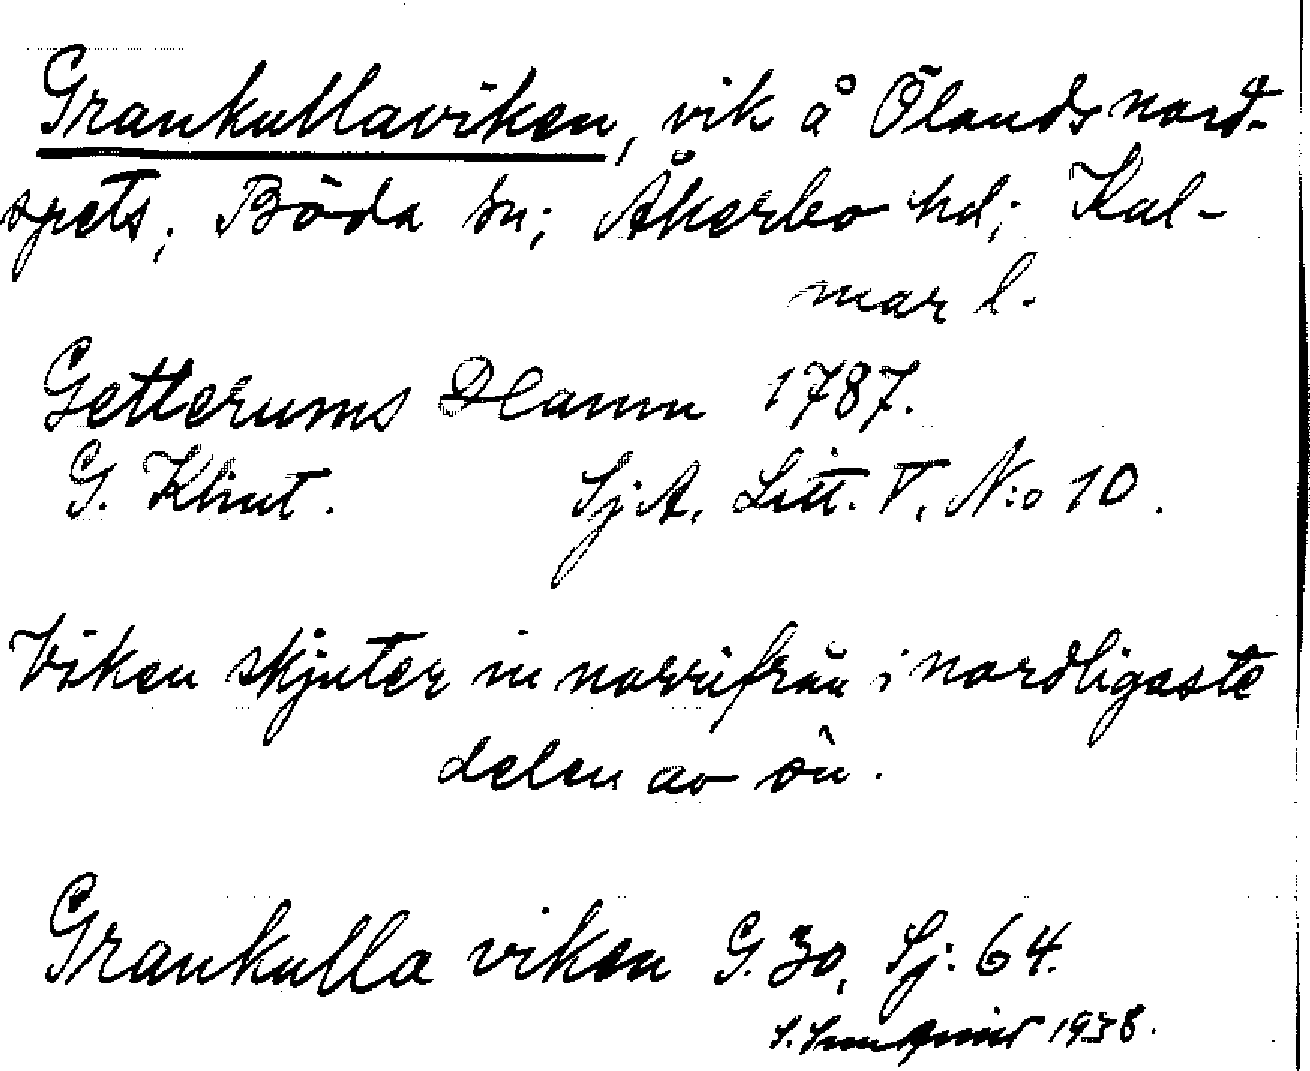 Grankullaviken, vik å Ölands nord-
spets; Böda sn; Åkerbo hd; Kal-
mar l.
Getterums Hamn 1787.
G. Klint. Sj.A. Litt. V, N:o 10.
Viken skjuter in norrifrån i nordligaste
delen av ön.
Grankulla viken G. 30, Sj. 64.
1938.